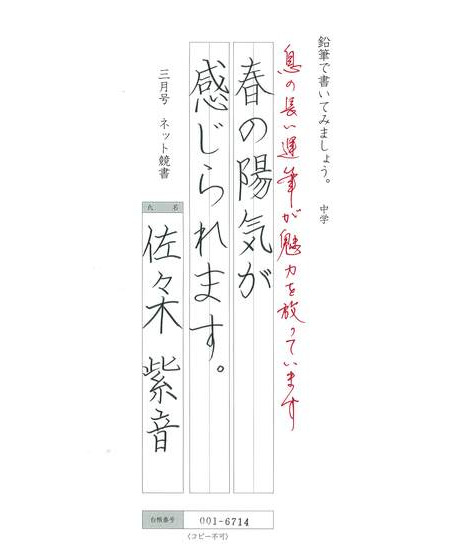 鉛筆で書いてみましょう。 中学
息の長い運筆が魅力を放っています
春の陽気が
感じられます。
三月号 ネット競書
氏名
佐々木 紫音
台帳番号
001-6714
〈コピー不可〉